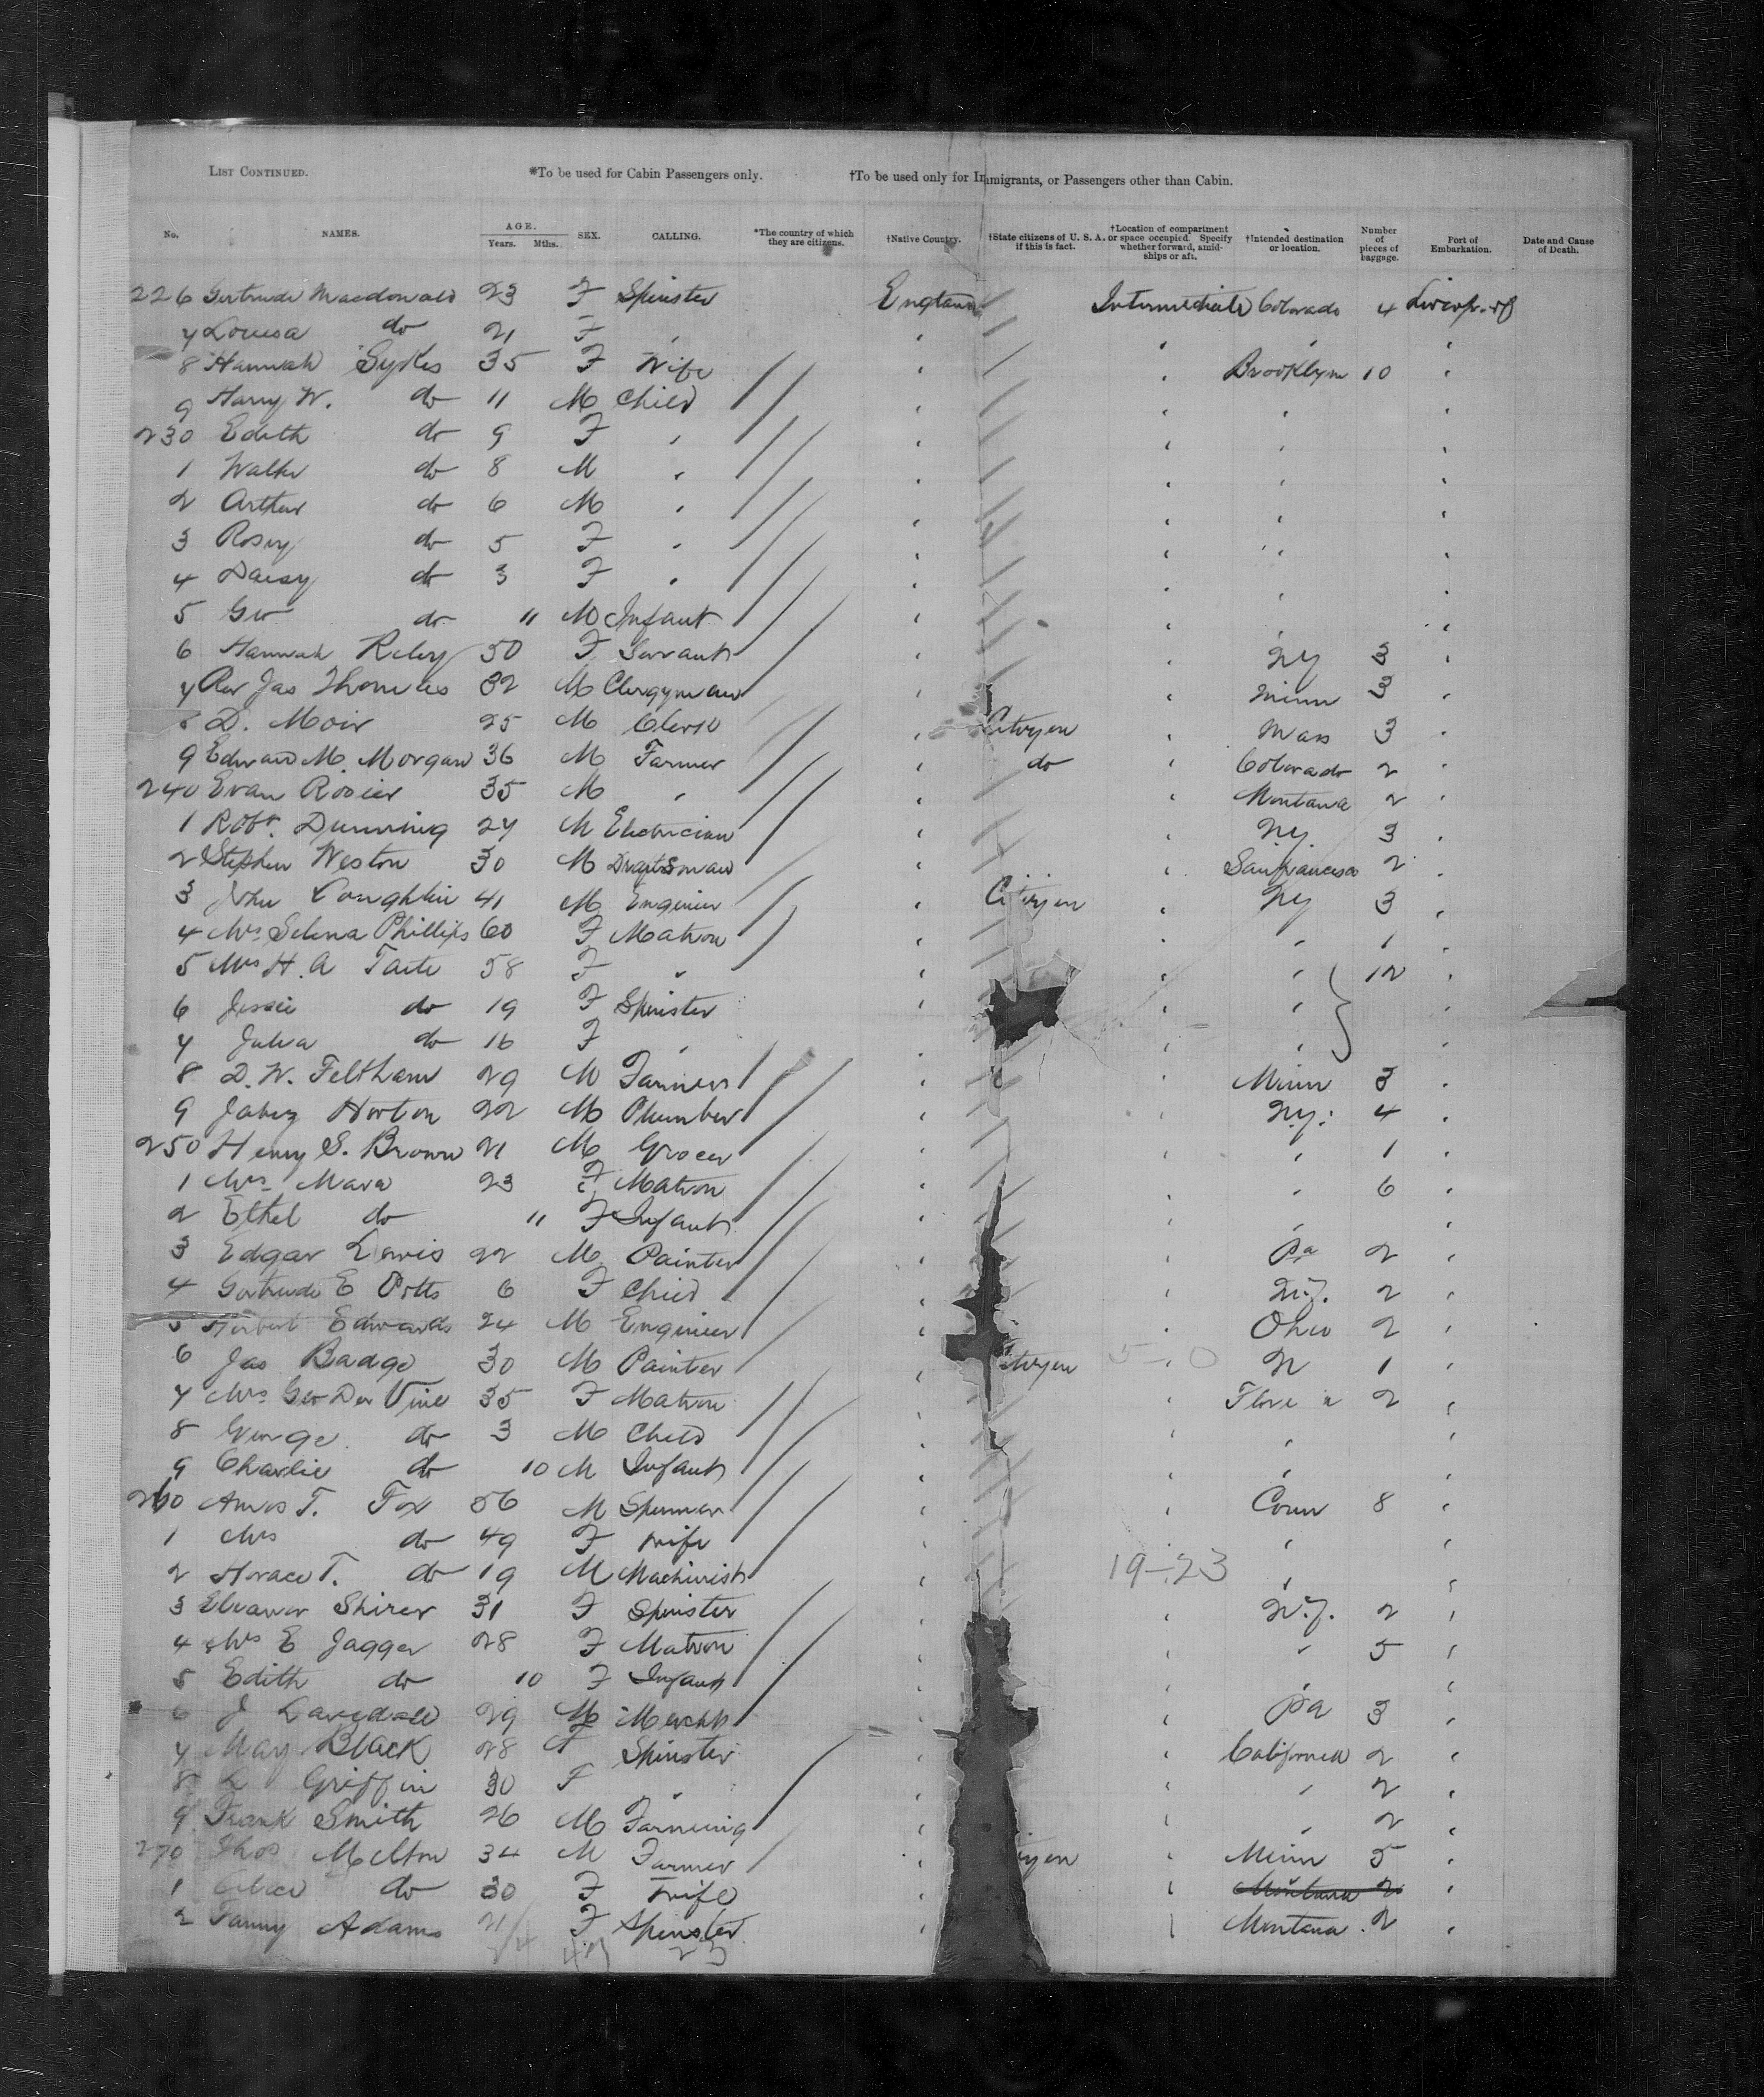 LIST CONTINUED. *To be used for Cabin Passengers only. †To be used only for Immigrants, or Passengers other than Cabin.
No. NAMES. AGE. Years. Mths. SEX. CALLING. *The country of which they are citizens. †Native Country. †State citizens of U. S. A. if this is fact. †Location of compartment or space occupied. Specify whether forward, amid-ships or aft. †Intended destination or location. Number of pieces of baggage. Port of Embarkation. Date and Cause of Death.
226 Gertrude Macdonald 23 F Spinster England Intermediate Colorado 4
7 Louisa do 21 F "
8 Hannah Sykes 35 F Wife Brooklyn 10
9 Harry W. do 11 M Child
230 Edith do 9 F "
1 Walter do 8 M "
2 Arthur do 6 M "
3 Rosey do 5 F "
4 Daisy do 3 F "
5 Geo do 11 M Infant
6 Hannah Reley 50 F Servant NY 3
7 Rev Jas Thomas 32 M Clergyman Minn 3
8 D. Moir 25 M Clerk Citizen Mass 3
9 Edward M. Morgan 36 M Farmer do Colorado 2
240 Evan 35 M " Montana 2
1 Robt. Dunning 27 M Electrician NY 3
2 Stephen Weston 30 M Dragtsman Sanfrancisco 2
3 John Coughlin 41 M Engineer Citizen NY 3
4 Mrs Selena Phillips 60 F Matron " 1
5 Mrs H. A Taite 58 F " " 12
6 Jessie do 19 F Spinster "
7 Julia do 16 F " "
8 D. W. Feltham 29 M Farmer Minn 3
9 Jabez Horton 22 M Plumber N.Y. 4
250 Henry S. Brown 21 M Grocer " 1
1 Mrs Mara 23 F Matron " 6
2 Ethel do 11 F Infant "
3 Edgar Lewis 22 M Painter Pa 2
4 Gertrude E Potts 6 F Child N.J. 2
5 Herbert Edwards 24 M Engineer Ohio 2
6 Jas Badge 30 M Painter Citizen N 1
7 Mrs Geo Der Vine 35 F Matron 2
8 George do 3 M Child "
9 Charlie do 10 M Infant "
260 Amos T. Fox 56 M Conn 8
1 Mrs do 49 F Wife "
2 Horace T. do 19 M Machinist 19-23 "
3 Eleanor Shirer 31 F Spinster N.J. 2
4 Mrs E Jagger 28 F Matron " 5
5 Edith do 10 F Infant "
6 J 29 M Mercht Pa 3
7 May Black 28 F Spinster California 2
8 L Griffin 30 F " " 2
9 Frank Smith 26 M Farming " 2
270 Thos Melton 34 M Farmer Minn 5
1 Alice do 30 F Wife Montana 2
2 Fanny Adams 21 F Spinster Montana 2